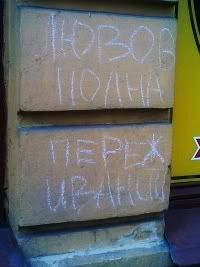 ЛЮБОВ
ПОЛНА
ПЕРЕЖ
ИВАНИЙ